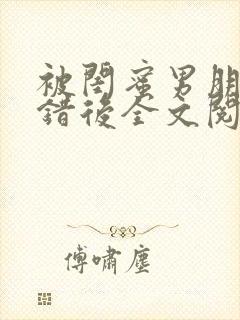 被閨蜜男朋
錯後全文閱
傅嘯塵